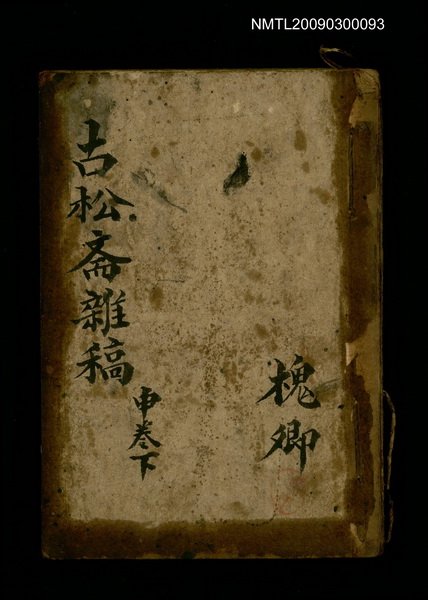 NMTL20090300093
古松斋雜稿
申卷下
槐卿